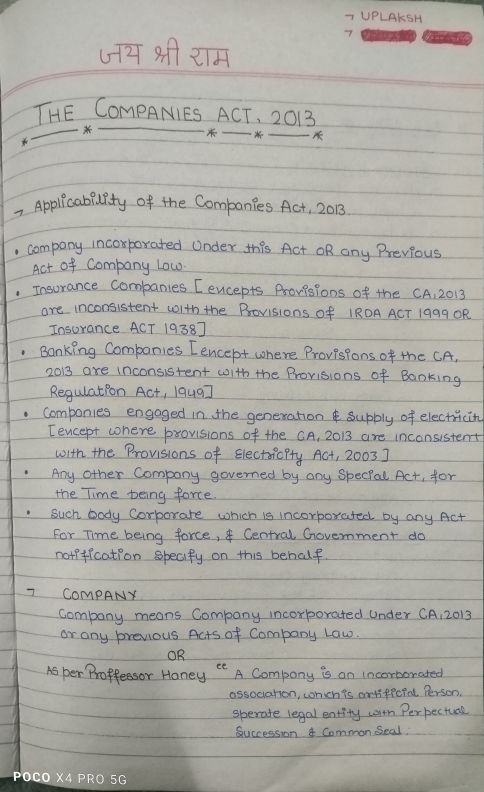 → UPLAKSH
→
जय श्री राम
THE COMPANIES ACT, 2013
→ Applicability of the Companies Act, 2013.
• Company incorporated Under this Act OR any Previous
Act of Company Law.
• Insurance Companies [encepts Provisions of the CA,2013
are inconsistent with the Provisions of IRDA ACT 1999 OR
Insurance ACT 1938]
• Banking Companies [encept where Provisions of the CA,
2013 are inconsistent with the Provisions of Banking
Regulation Act, 1949]
• Companies engaged in the generation & supply of electricity
[encept where provisions of the CA, 2013 are inconsistent
with the Provisions of Electricity Act, 2003]
• Any other Company governed by any Special Act, for
the Time being force.
• Such body Corporate which is incorporated by any Act
For Time being force, & Central Government do
notification specify on this behalf.
→ COMPANY
Company means Company incorporated Under CA,2013
or any previous Acts of Company Law.
OR
As per Proffessor Haney "A Company is an incorporated
association, which is artifficial Person,
sperate legal entity with Perpectual
Succession & Common Seal.
POCO X4 PRO 5G